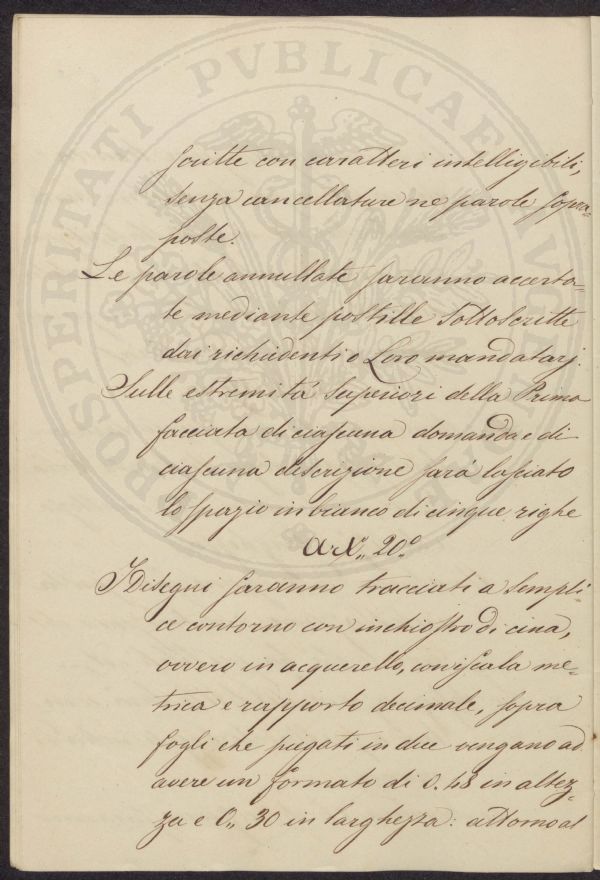 scritte con caratteri intelligibili,
senza cancellature ne parole sopra-
poste.
Le parole annullate saranno accerta-
te mediante postille sottoscritte
dai richiedenti o Loro mandatarj.
Sulle estremitá superiori della Prima
facciata di ciascuna domanda e di
ciascuna descrizione sará lasciato
lo spazio in bianco di cinque righe
Art. 20.o
I Disegni saranno tracciati a sempli
ce contorno con inchiostro di cina,
ovvero in acquerello, con iscala me-
trica e rapporto decimale, sopra
fogli che piegati in due vengano ad
avere un formato di 0. 48 in altez-
za e 0,, 30 in larghezza: attorno al
PROSPERITATI PVBLICAE AVGENDAE